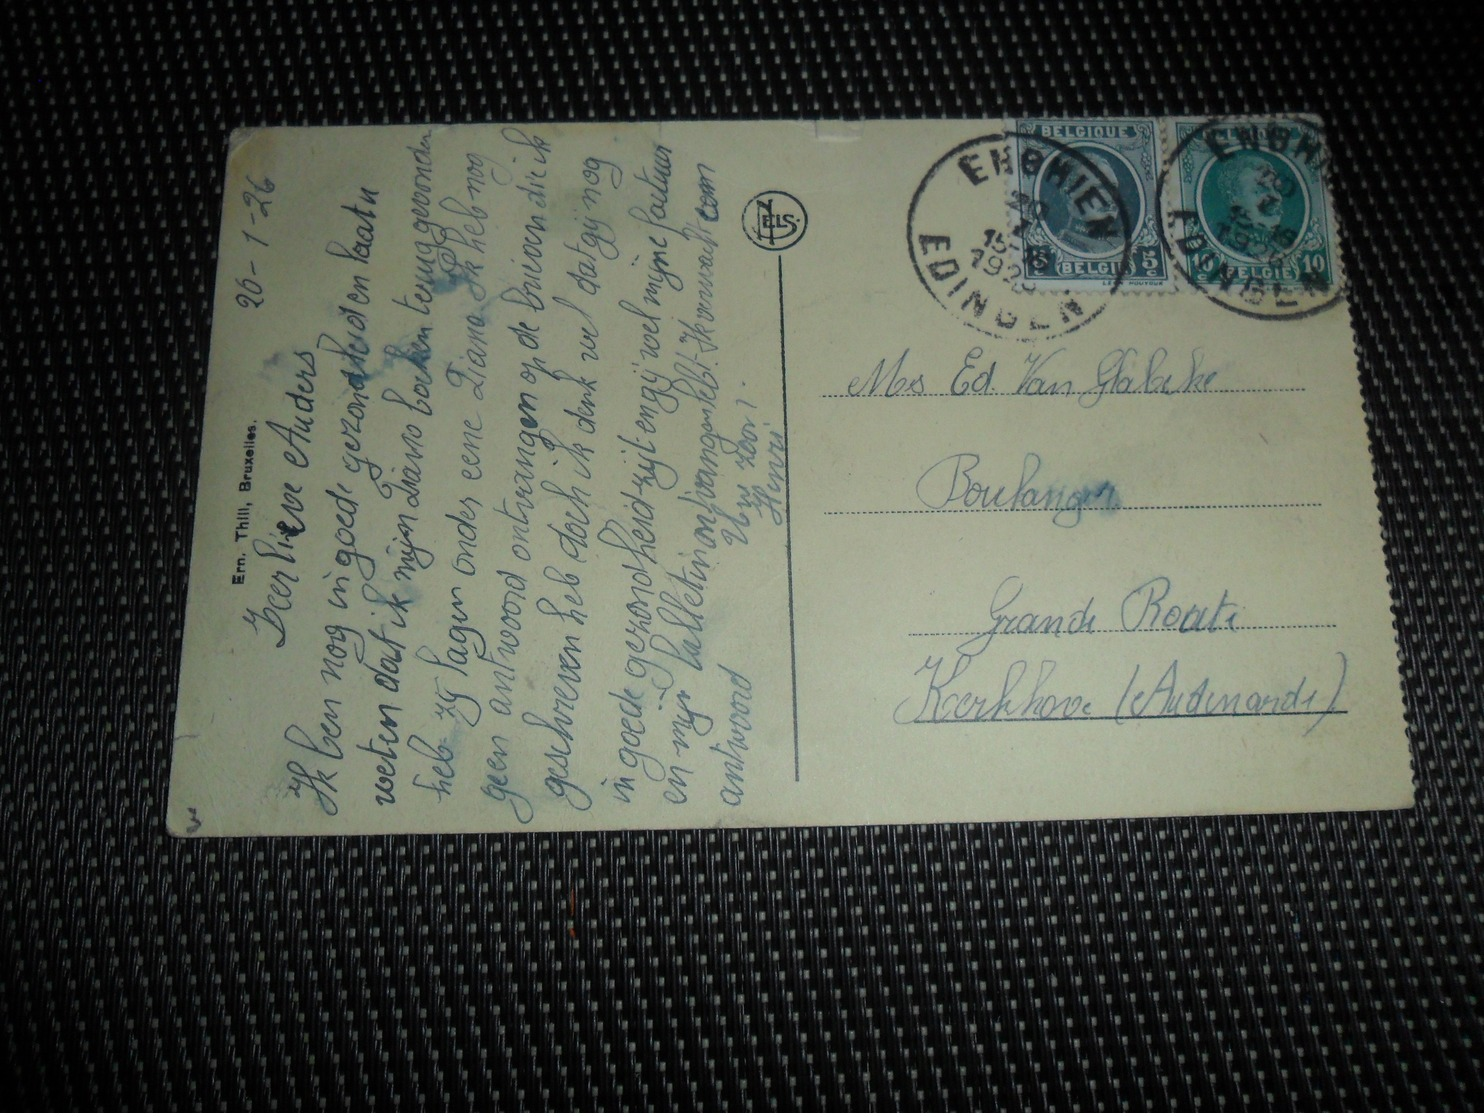 26-1-26
Zeer lieve Ouders
Ik ben nog in goede gezondheid en laat u
weten dat ik mijn Diano boeken terug gevonden
heb zij lagen onder eene Diano Ik heb nog
geen antwoord ontvangen op de brieven die ik
geschreven heb doch ik denk wel dat gij nog
in goede gezondheid zijt en gij wel mijne
en mijn bulletin ontvangen hebt. Ik verwacht een
antwoord
Uw zoon
Henri
Ern. Thill, Bruxelles.
NELS
ENGHIEN
1926
EDINGEN
BELGIQUE
5c 5c
BELGIE
ENGHIEN
1926
EDINGEN
BELGIQUE
10 10
BELGIË
Mrs Ed. Van Glabeke
Boulanger
Grande Route
Kerkhove (Audenarde)